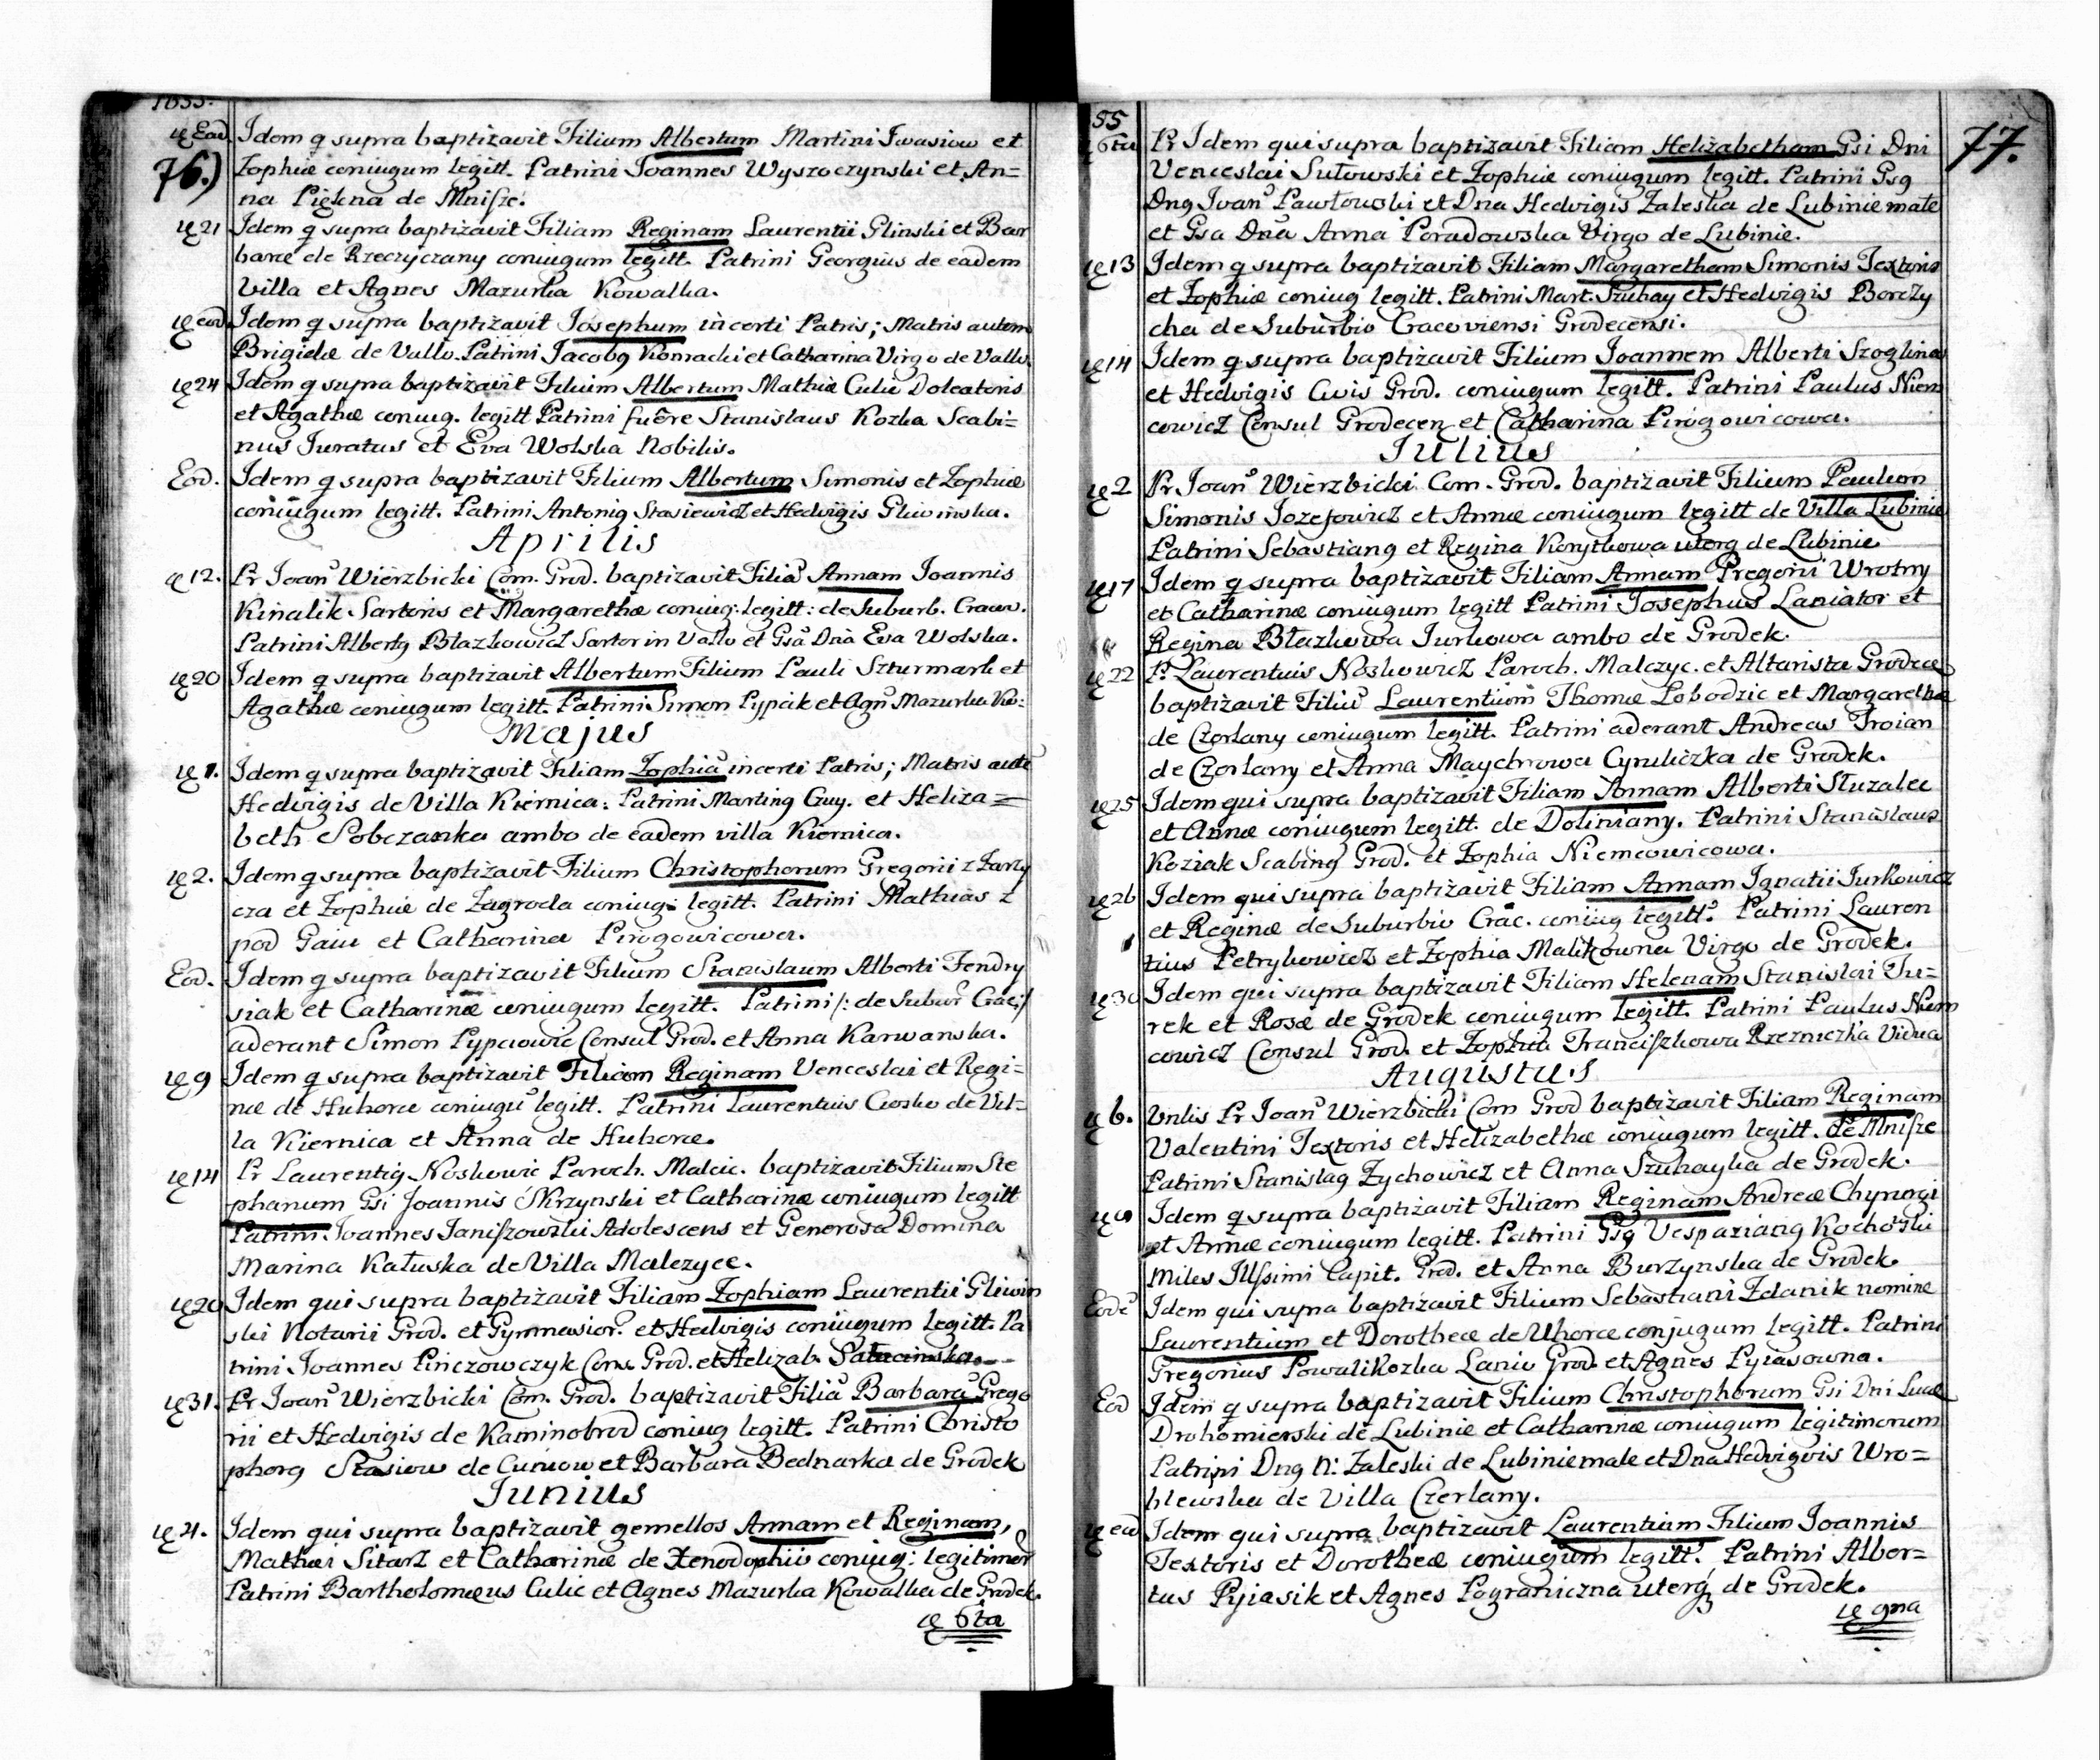 1655.
ie Ead. Idem q supra baptizavit Filium Albertum Martini Iwasiow et
76.) Zophiæ coniugum legitt. Patrini Joannes Wyszoczynski et An=
na Piękna de Mnisze.
ie 21 Idem q supra baptizavit Filiam Reginam Laurentii Glinski et Bar
baræ de Rzeczyczany coniugum legitt. Patrini Georgius de eadem
Villa et Agnes Mazurka Kowalka.
ie ead Idem q supra baptizavit Josephum incerti Patris; Matris autem
Brigidæ de Vallo. Patrini Jacobg Konracki et Catharina Virgo de Vallo.
ie 24 Idem q supra baptizavit Filium Albertum Mathiæ Culic Doleatoris
et Agathæ coniug. legitt Patrini fuêre Stanislaus Kozka Scabi=
nus Juratus et Eva Wolska Nobilis.
Eod. Idem q supra baptizavit Filium Albertum Simonis et Zophiæ
coniugum legitt. Patrini Antonig Stasiewicz et Hedvigis Gliwinska.
Aprilis
ie 12. Pr Joan Wierzbicki Com. Grod. baptizavit Filia Annam Joannis
Kinalik Sartoris et Margarethæ coniug: legitt: de Suburb. Cracov.
Patrini Albertg Błazkowicz Sartor in Vallo et Gsa Dna Eva Wolska.
ie 20 Idem q supra baptizavit Albertum Filium Pauli Szturmark et
Agathæ coniugum legitt. Patrini Simon Lypak et Agn Mazurka Ko:
Majus
ie 1. Idem q supra baptizavit Filiam Zophia incerti Patris; Matris aute
Hedvigis de Villa Kiernica: Patrini Marting Guy. et Heliza=
beth Sobczanka ambo de eadem villa Kiernica.
ie 2. Idem q supra baptizavit Filium Christophorum Gregorii z Zarzy
cza et Zophiæ de Zagroda coniug: legitt. Patrini Mathias z
pod Gaiu et Catharina Pirogowicowa.
Eod. Idem q supra baptizavit Filium Stanislaum Alberti Fendry
siak et Catharinæ coniugum legitt. Patrini /: de Subur Crac:/
aderant Simon Lypcowic Consul Grod. et Anna Karwanska.
ie 9 Idem q supra baptizavit Filiam Reginam Venceslai et Regi=
næ de Huhorce coniugu legitt. Patrini Laurentius Ciosko de Vil=
la Kiernica et Anna de Huhorce.
ie 14 Pr Laurentig Noskowic Paroch. Malcic. baptizavit Filium Ste
phanum Gsi Joannis Skrzynski et Catharinæ coniugum legitt
Patrini Joannes Janiszowski Adolescens et Generosa Domina
Marina Kałuska de Villa Malczyce.
ie 20 Idem qui supra baptizavit Filiam Zophiam Laurentii Gliwin
ski Notarii Grod. et Gymnasior. et Hedvigis coniugum legitt. Pa
trini Joannes Pinczowczyk Cons. Grod. et Helizab.
ie 31. Pr Joan Wierzbicki Com. Grod. baptizavit Filia Barbara Grego
rii et Hedvigis de Kaminobrod coniug legitt. Patrini Christo
phorg Stasiow de Cuniow et Barbara Bednarka de Grodek
Junius
ie 4. Idem qui supra baptizavit gemellos Annam et Reginam,
Mathæi Sitarz et Catharinæ de Xenodochio coniug: legitimor
Patrini Bartholomæus Culic et Agnes Mazurka Kowalka de Grodek.
ie 6ta
55
6ta Pr Idem qui supra baptizavit Filiam Helizabetham Gsi Dni 77.
Venceslai Sułowski et Zophiæ coniugum legitt. Patrini Gsg
Dng Ivan Pawłowski et Dna Hedvigis Zaleska de Lubinie małe
et Gsa Dna Anna Poradowska Virgo de Lubinie.
ie 13 Idem q supra baptizavit Filiam Margaretham Simonis Textoris
et Zophiæ coniug legitt. Patrini Mart. Szuhay et Hedvigis Borczy
cha de Suburbio Cracoviensi Grodecensi.
ie 14 Idem q supra baptizavit Filium Joannem Alberti Szoglina
et Hedvigis Civis Grod. coniugum legitt. Patrini Paulus Niem
cowicz Consul Grodecen et Catharina Pirogowicowa.
Julius
ie 2 Pr Joan Wierzbicki Com. Grod. baptizavit Filium Paulum
Simonis Jozefowicz et Annæ coniugum legitt de Villa Lubinie
Patrini Sebastiang et Regina Korytkowa uterq de Lubinie
ie 17 Idem q supra baptizavit Filiam Annam Gregorii Wrotny
et Catharinæ coniugum legitt Patrini Josephus Laniator et
Regina Błazkowa Jurkowa ambo de Grodek.
ie 22 Pr Laurentius Noskowicz Paroch. Malczyc. et Altarista Grodece
baptizavit Filiu Laurentium Thomæ Lobodzic et Margarethæ
de Czerlany coniugum legitt. Patrini aderant Andreas Troian
de Czerlany et Anna Maychrowa Cyruliczka de Grodek.
ie 25 Idem qui supra baptizavit Filiam Annam Alberti Sluzalec
et Annæ coniugum legitt. de Doliniany. Patrini Stanislaus
Koziak Scabing Grod. et Zophia Niemcowicowa.
ie 26 Idem qui supra baptizavit Filiam Annam Ignatii Jurkowicz
et Reginæ de Suburbio Crac. coniug legitt. Patrini Lauren
tius Petrykowicz et Zophia Malikowna Virgo de Grodek.
ie 30 Idem qui supra baptizavit Filiam Helenam Stanislai Tu=
rek et Rosæ de Grodek coniugum legitt. Patrini Paulus Niem
cowicz Consul Grod. et Zophia Franciszkowa Rzezniczka Vidua
Augustus
ie 6. Vnlis Pr Joan Wierzbicki Com Grod baptizavit Filiam Reginam
Valentini Textoris et Helizabethæ coniugum legitt. de Mnisze
Patrini Stanislag Zychowicz et Anna Szuhayka de Grodek.
Idem q supra baptizavit Filiam Reginam Andreæ
et Annæ coniugum legitt. Patrini Gsg Vespaziang Kochoski
Miles Illssimi Capit. Grod. et Anna Burzynska de Grodek.
Eode Idem qui supra baptizavit Filium Sebastiani Zdanik nomine
Laurentium et Dorotheæ de Uhorce conjugum legitt. Patrini
Gregorius Powalikozka Lanio Grod. et Agnes Pyiasowna.
Eod Idem q supra baptizavit Filium Christophorum Gsi Dni Lucæ
Drohomierski de Lubinie et Catharinæ coniugum legitimorum
Patrini Dng N: Zaleski de Lubinie małe et Dna Hedvigvis Wro=
blewska de Villa Czerlany.
ie ead Idem qui supra baptizavit Laurentium Filium Joannis
Textoris et Dorotheæ coniugum legitt. Patrini Alber=
tus Pyiasik et Agnes Pograniczna uterq de Grodek.
ie 9na